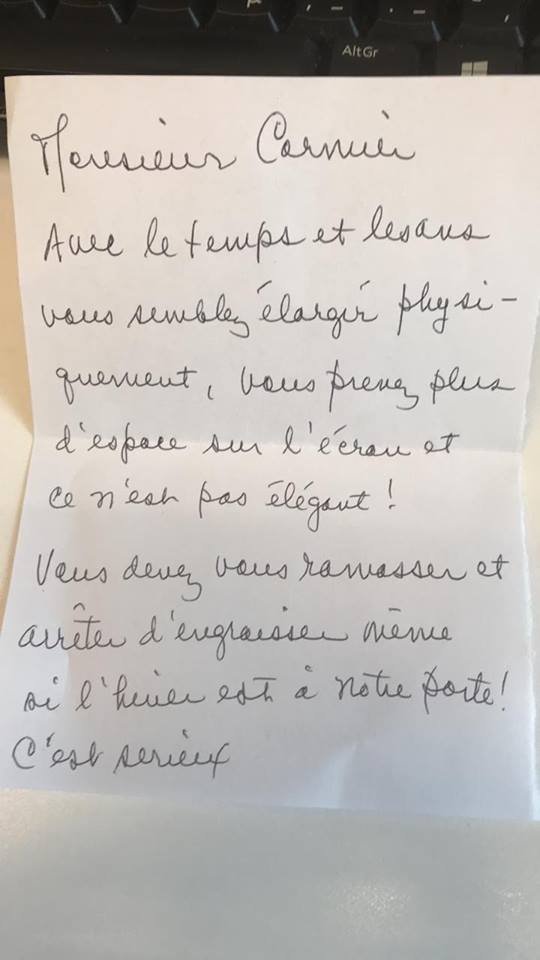 AltGr
Monsieur Cormier
Avec le temps et les ans
vous semblez élargir physi-
quement, vous prenez plus
d'espace sur l'écran et
ce n'est pas élégant!
Vous devez vous ramasser et
arrêter d'engraisser même
si l'hiver est à notre porte!
C'est serieux